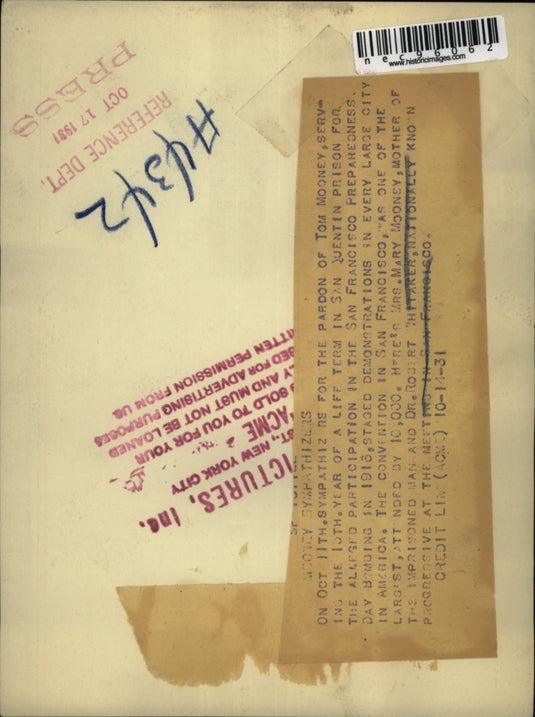 nec96062
www.historicimages.com
PRESS
OCT 17 1931
REFERENCE DEPT.
#4342
MOONEY SYMPATHIZERS
ON OCT 11TH.SYMPATHIZ RS FOR THE PARDON OF TOM MOONEY,SERV-
ING THE 15TH.YEAR OF A LIFE TERM IN SAN QUENTIN PRISON FOR
THE ALLEGED PARTICIPATION IN THE SAN FRANCISCO PREPAREDNESS.
DAY BOMBING IN 1916,STAGED DEMONSTRATIONS IN EVERY LARGE CITY
IN AMERICA. THE CONVENTION IN SAN FRANCISCO, WAS ONE OF THE
LARGEST,ATT NDED BY 10,000. HERE'S MRS.MARY MOONEY,MOTHER OF
THE IMPRISONED MAN AND DR.ROBERT WHITAKER,NATIONALLY KNOWN
PROGRESSIVE AT THE MEETING IN SAN FRANCISCO.
CREDIT LINE (ACME) 10-14-31
PICTURES, Inc.
ST., NEW YORK CITY
"ACME"
SOLD TO YOU FOR YOUR
LY AND MUST NOT BE LOANED
SED FOR ADVERTISING PURPOSES
ITTEN PERMISSION FROM US